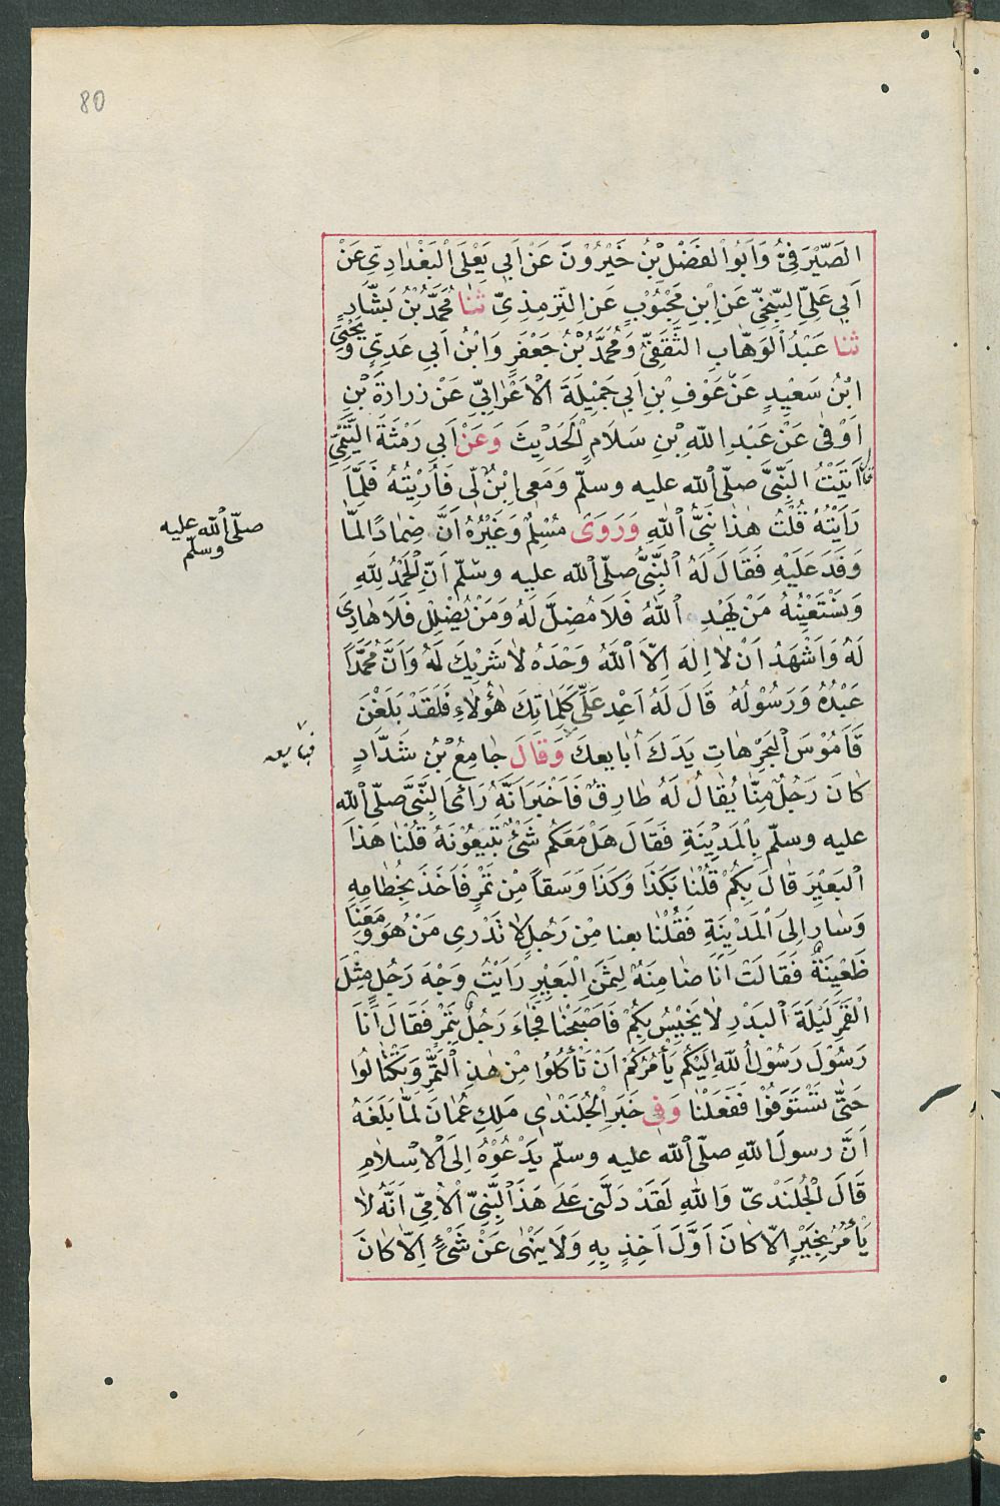 80
الصَّيْرَفِىُّ وَاَبُوا لفَضْلِ بْنُ خَيْرُوْنَ عَنْ اَبِى يَعْلَى الْبَغْدَادِىِ عَنْ
اَبِى عَلِىِّ السِّنْجِىِّ عَنِ ابْنِ مَحْبُوْبٍ عَنِ التِّرْمِذِىِّ ثَنَا مُحَمَّدُ بْنُ بَشَّارٍ
ثنا عَبْدُ الْوَهَّابِ الثَّقَفِىُّ وَمُحَمَّدُ بْنُ جَعْفَرٍ وَابْنُ اَبِى عَدِىٍّ وَيَحْيَى
ابْنُ سَعِيْدٍ عَنْ عَوْفِ بْنِ اَبِى جَمِيْلَةَ الْاَعْرَابِىِّ عَنْ زرَارَةَ بْنِ
اَوْفٰى عَنْ عَبْدِ اللّٰهِ بْنِ سَلَامٍ الْحَدِيْثَ وَعَنْ اَبِى رَمْثَةَ التَّيْمِىِّ
قال اَتَيْتُ النَّبِىَّ صلّى اللّٰه عليه وسلّم وَمَعِى ابْنٌ لِّى فَاُرِيْتُهُ فَلَمَّا
رَاَيْتُهُ قُلْتُ هٰذَا نَبِىُّ اللّٰهِ وَرَوَى مُسْلِمٌ وَغَيْرُهُ اَنَّ ضِمَادًا لَمَّا
صلّى اللّٰه عليه
وسلّم
وَفَدَ عَلَيْهِ فَقَالَ لَهُ النَّبِىُّ صلّى اللّٰه عليه وسلّم اَنِّ الْحَمْدُ لِلّٰهِ
وَنَسْتَعِيْنُهُ مَنْ يَهْدِ اللّٰهُ فَلَا مُضِلَّ لَهُ وَمَنْ يُضْلِلْ فَلَا هَادِىَ
لَهُ وَاَشْهَدُ اَنْ لَا اِلٰهَ اِلَّا اللّٰهُ وَحْدَهُ لَا شَرِيْكَ لَهُ وَاَنَّ مُحَمَّدًا
عَبْدُهُ وَرَسُوْلُهُ قَالَ لَهُ اَعِدْ عَلَىَّ كَلِمَاتِكَ هٰؤُلَاءِ فَلَقَدْ بَلَغْنَ
قَامُوْسَ الْبَحْرِ هَاتِ يَدَكَ اُبَايعكَ وَقَالَ جَامِعُ بْنُ شَدَّادٍ
فبايعه
كَانَ رَجُلٌ مِنَّا يُقَالُ لَهُ طَارِقٌ فَاَخْبَرَ اَنَّهُ رَاَىَ النَّبِىَّ صلّى اللّٰه
عليه وسلّم بِالْمَدِيْنَةِ فَقَالَ هَلْ مَعَكُم شَىْءٌ تَبِيْعُوْنَهُ قُلْنَا هَذَا
الْبَعِيْرَ قَالَ بِكَمْ قُلْنَا بَكَذَا وَكَذَا وَسَقًا مِنْ تَمْرٍ فَاَخَذَ بِخُطَامِهِ
وَسَارِ اِلَى الْمَدِيْنَةِ فَقُلْنَا بعنا مِنْ رَجُلٍ لَا نَدْرِى مَنْ هُوَ وَمَعَنَا
ظَعِيْنَةٌ فَقَالَتْ اَنَا ضَامِنَةٌ لِثَمَنِ الْبَعِيْرِ رَاَيْتُ وَجْهَ رَجُلٍ مِثْلَ
الْقَمَرِ لَيْلَةَ الْبَدْرِ لَا يَخِيْسُ بِكُمْ فَاَصْبَحْنَا فَجَاءَ رَجُلٌ بِتَمْرٍ فَقَالَ اَنَا
رَسُوْلَ رَسُوْلُ اللّٰهِ اِلَيْكُم يَأْمُرُكُمْ اَنْ تَأْكُلُوا مِنْ هٰذِ التَّمْرِ وَتَكْتَالُوا
حَتّٰى تَسْتَوْفُوْا فَفَعَلْنَا وَفِى خَبَرِ الْجُلَنْدٰى مَلِكِ عُمَانَ لَمَّا بَلَغَهُ
اَنَّ رسولَ اللّٰهِ صلّى اللّٰه عليه وسلّم يَدْعُوْهُ اِلَى الْاِسْلَامِ
قَالَ الْجُلَنْدىّ وَاللّٰهِ لَقَدْ دَلَّنِى عَلَى هَذَ النَّبِىِّ الْاُمِّىِّ اَنَّهُ لَا
يَأْمُرُ بِخَيْرٍ اِلَّا كَانَ اَوَّلَ اٰخِذٍ بِهِ وَلَا يَنْهٰى عَنْ شَىْءٍ اِلَّا كَانَ